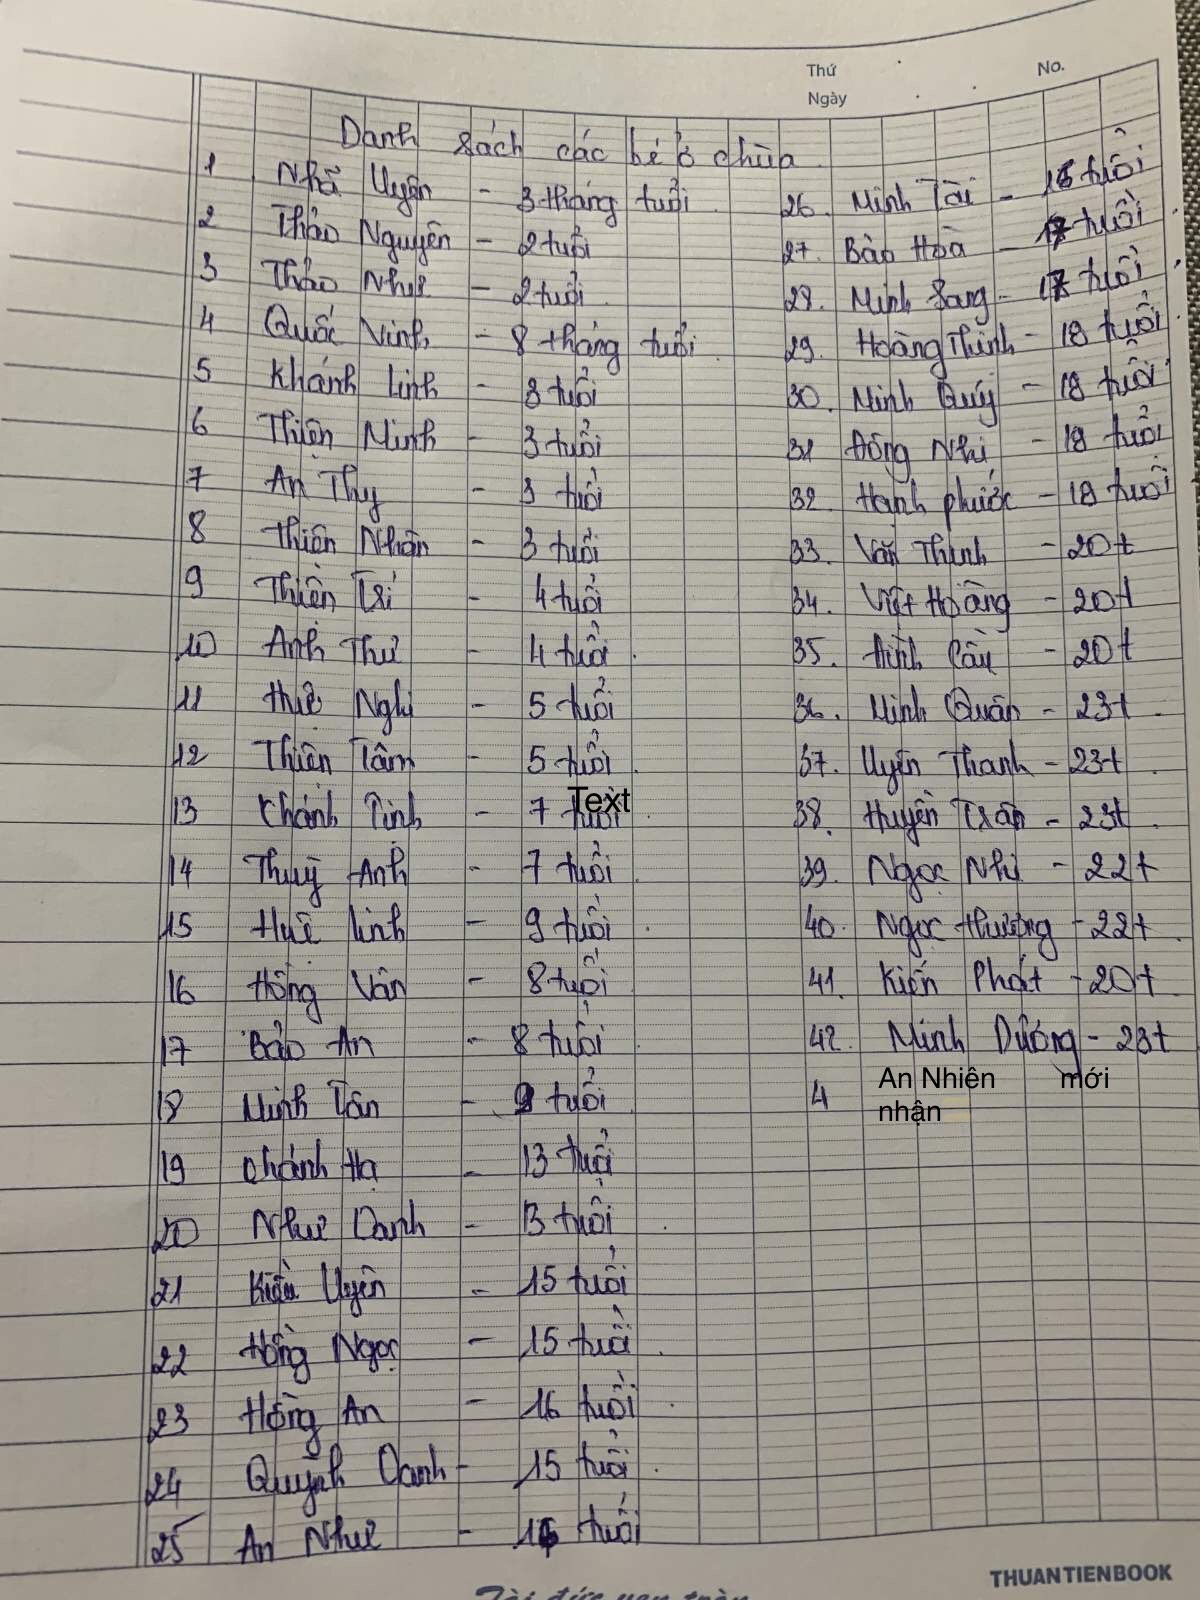 Thứ
No.
Ngày
Danh sách các bé ở chùa
1 Nhã Uyên - 3 tháng tuổi
2 Thảo Nguyên - 2 tuổi
3 Thảo Như - 2 tuổi
4 Quốc Vinh - 8 tháng tuổi
5 Khánh Linh - 3 tuổi
6 Thiện Minh - 3 tuổi
7 An Thy - 3 tuổi
8 Thiện Nhân - 3 tuổi
9 Thiện Trí - 4 tuổi
10 Anh Thư - 4 tuổi
11 Huệ Nghi - 5 tuổi
12 Thiện Tâm - 5 tuổi
13 Khánh - 7 tuổi
Text
14 Thuỳ Anh - 7 tuổi
15 Huệ Linh - 9 tuổi
16 Hồng Vân - 8 tuổi
17 Bảo An - 8 tuổi
18 Minh Tân - 9 tuổi
19 Chánh Hạ - 13 tuổi
20 Như Oanh - 13 tuổi
21 Kiều Uyên - 15 tuổi
22 Hồng Ngọc - 15 tuổi
23 Hồng An - 16 tuổi
24 Quỳnh Oanh - 15 tuổi
25 An Như - 16 tuổi
26. Minh Tài - 16 tuổi
27. Bảo Hoà - 17 tuổi
28. Minh Sang - 17 tuổi
29. Hoàng Thịnh - 18 tuổi
30. Minh Quý - 18 tuổi
31 Đông Nhi - 18 tuổi
32. Hạnh phước - 18 tuổi
33. Văn Thịnh - 20t
34. Việt Hoàng - 20t
35. - 20t
36. Minh Quân - 23t
37. Uyên Thanh - 23t
38. Huyền Trân - 23t
39. Ngọc Nhi - 22t
40. Ngọc Thương - 22t
41. Kiến Phát - 20t
42. Minh Dương - 23t
4 An Nhiên mới
nhận
THUANTIENBOOK